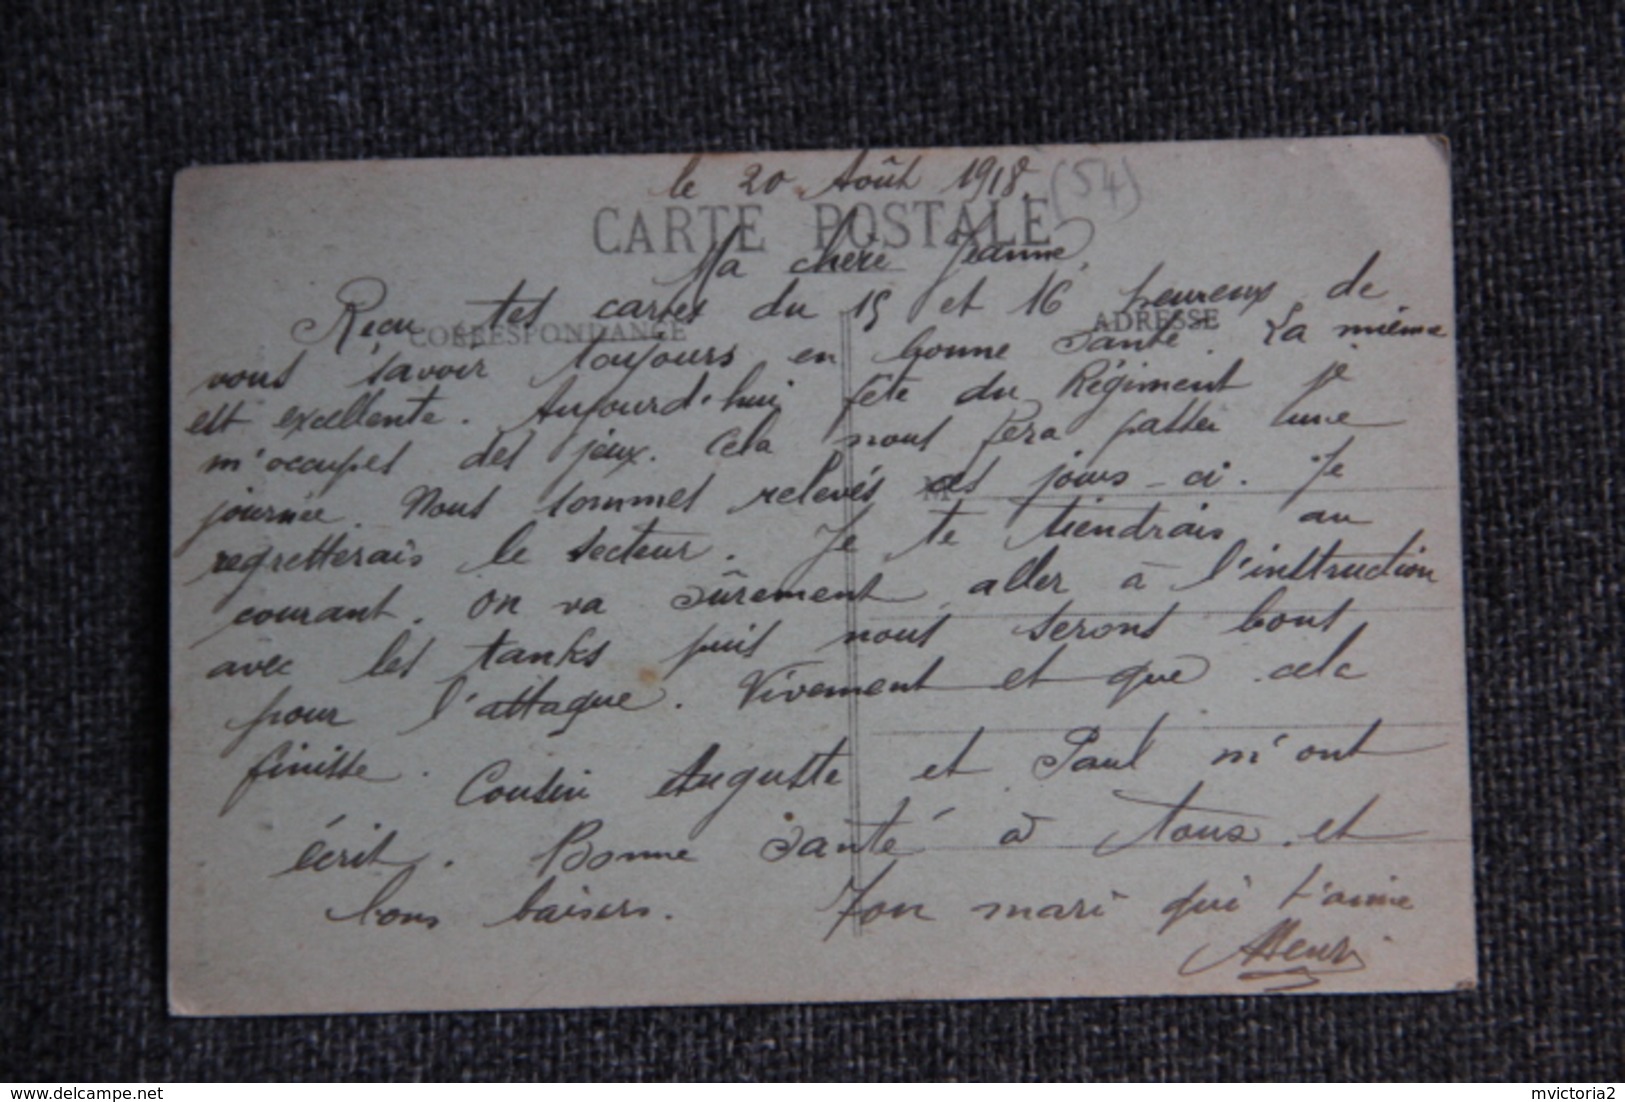 le 20 Août 1918
(54)
CARTE POSTALE
Ma chère Jeanne,
Reçu tes cartes du 15 et 16 heureux de
CORRESPONDANCE
ADRESSE
vous savoir toujours en bonne santé. La mienne
est excellente. Aujourd'hui fête du Régiment je
m'occupes des jeux. Cela nous fera passer une
journée. Nous sommes relevés ces jours-ci. Je
M
regretterais le secteur. Je te tiendrais au
courant. On va sûrement aller à l'instruction
avec les tanks puis nous serons bons
pour l'attaque. Vivement et que cela
finisse.
Cousin Auguste et Paul m'ont
écrit. Bonne santé à tous et
bons baisers. Ton mari qui t'aime
Henri
delcampe.net
mvictoria2